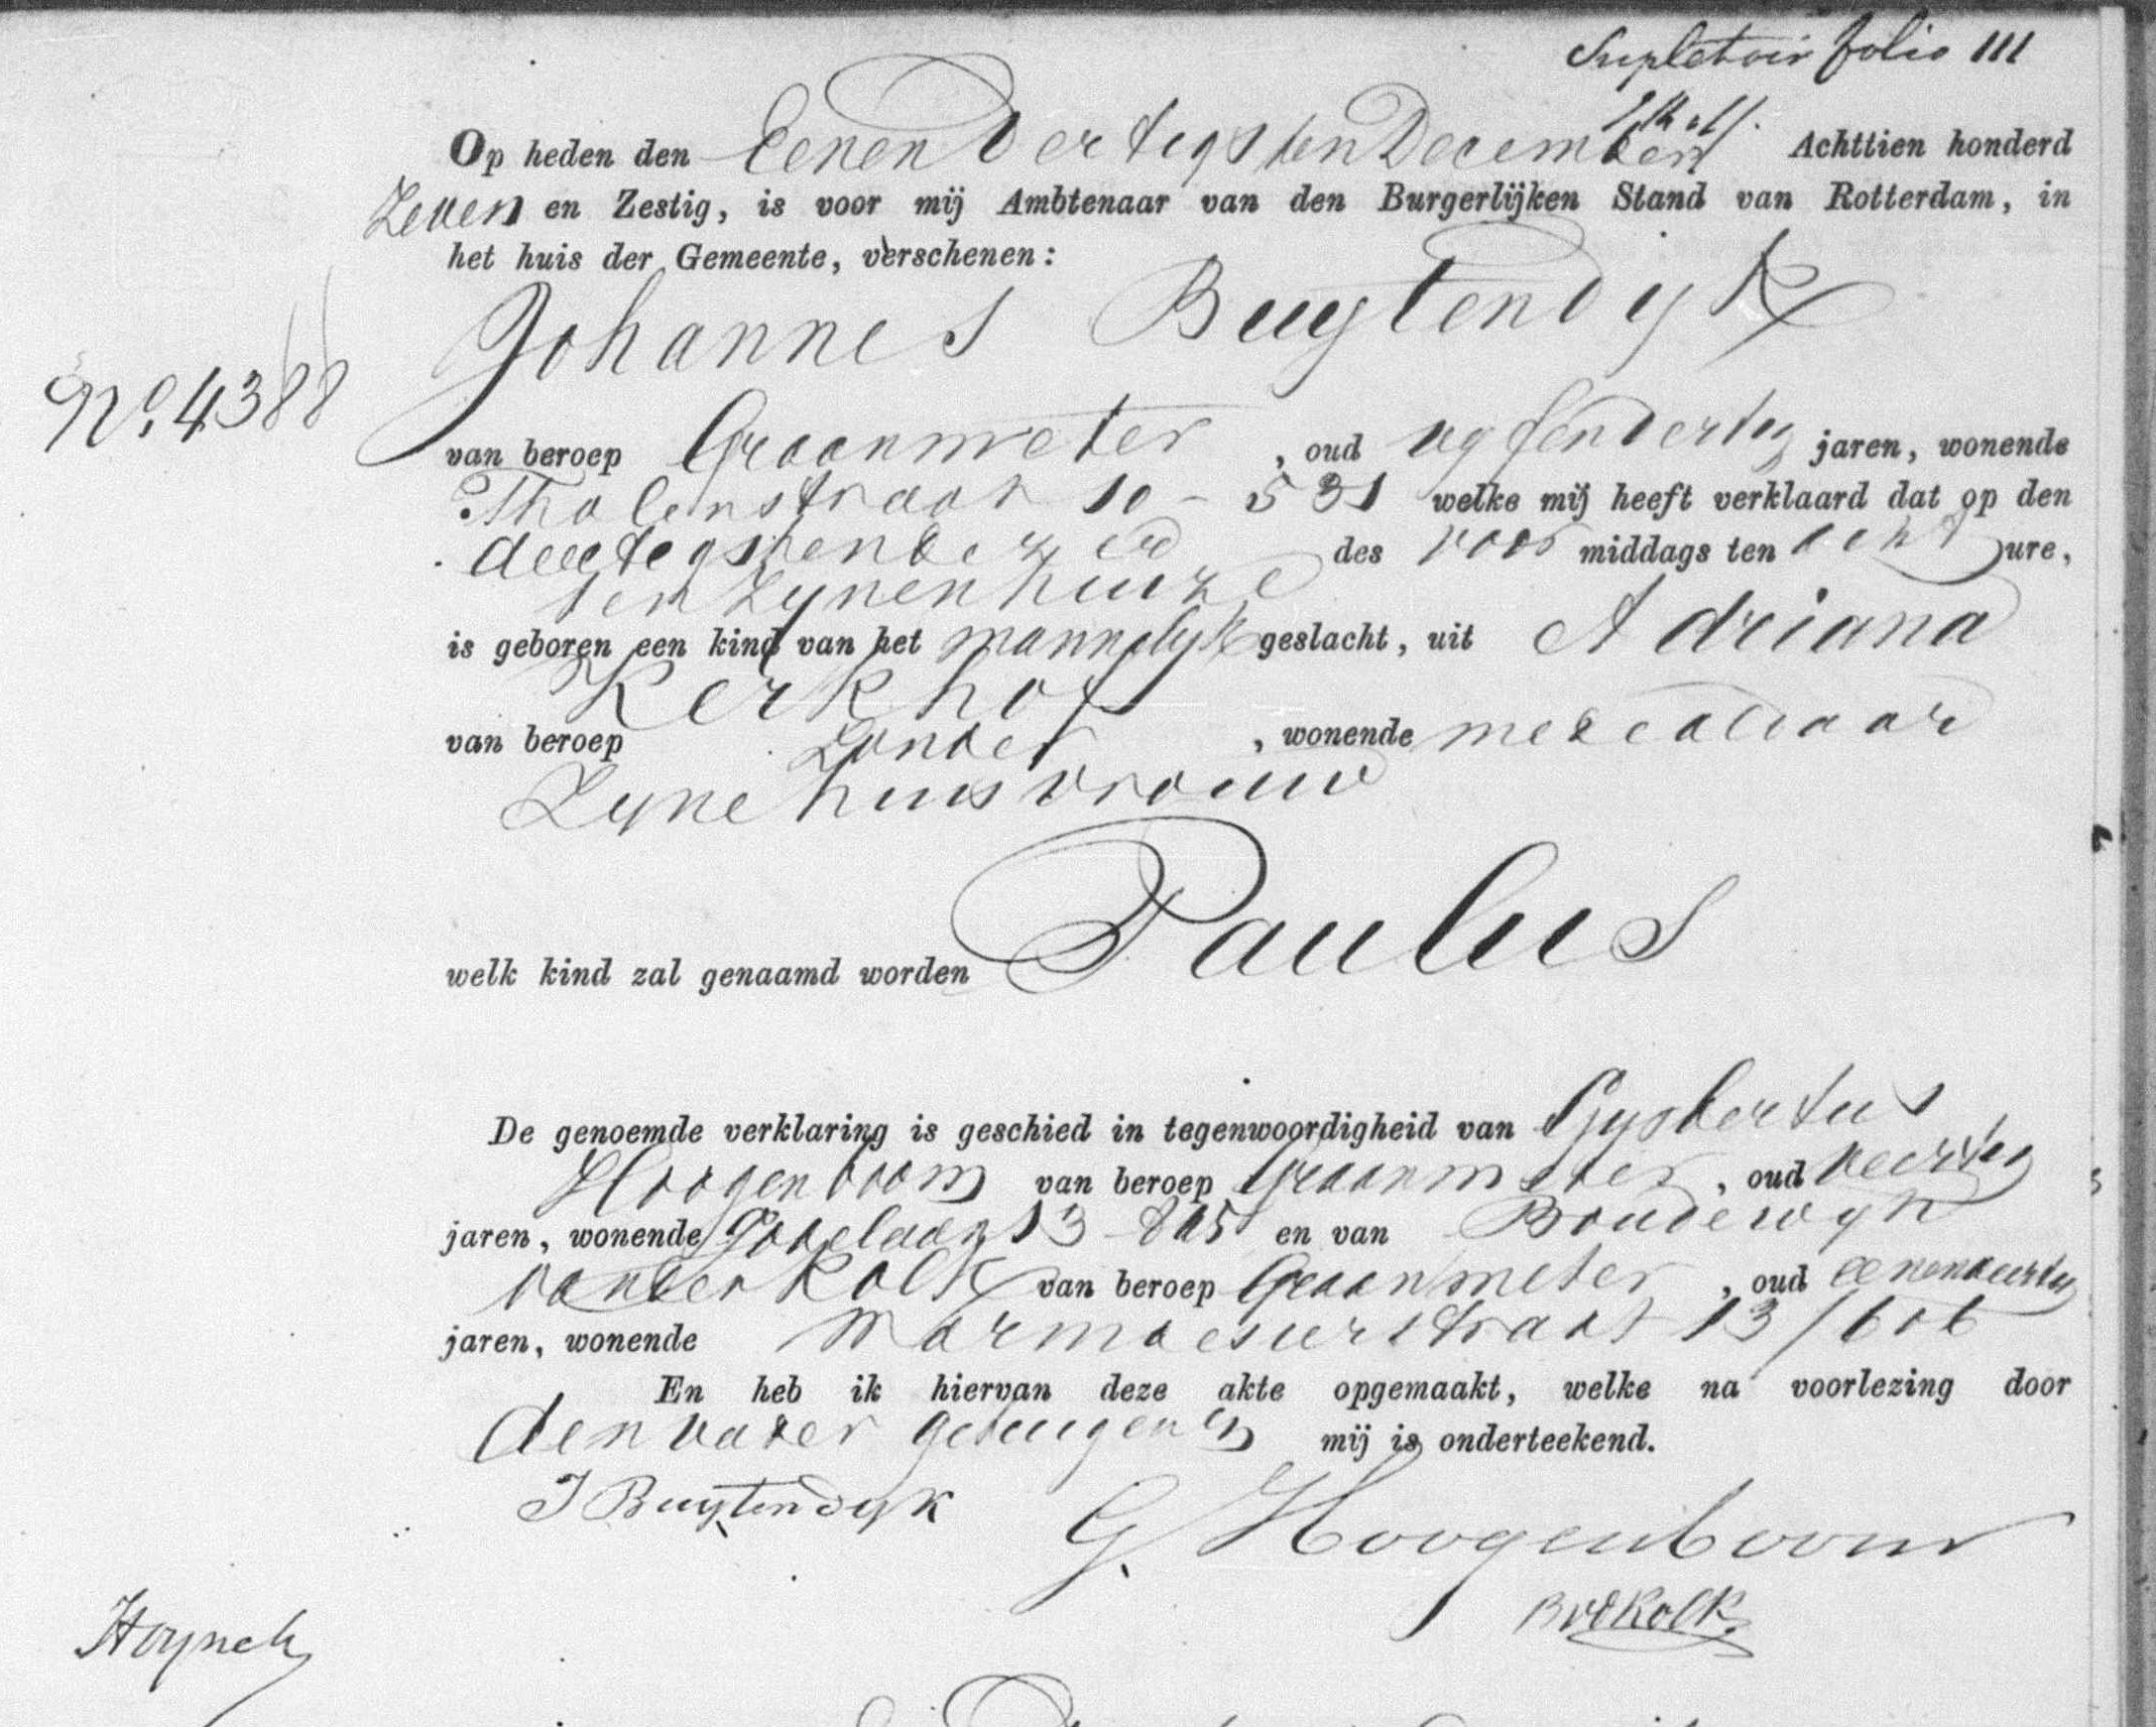 Supletoir folio 111
Op heden den Eenen Dertigsten December Achttien honderd
Zeven en Zestig, is voor mij Ambtenaar van den Burgerlijken Stand van Rotterdam, in
het huis der Gemeente, verschenen:
Johannes Buytendyk
No. 4388
van beroep Graanmeter, oud vyfendertig jaren, wonende
Tholenstraat 10-531 welke mij heeft verklaard dat op den
dertigsten dezer des voor middags ten acht ure,
ten Zynen huize
is geboren een kind van het mannelyk geslacht, uit Adriana
Kerkhof
van beroep Zonder, wonende mede aldaar
Zyne huisvrouw
Paulus
welk kind zal genaamd worden
De genoemde verklaring is geschied in tegenwoordigheid van Gysbertus
Hoogenboom van beroep Graanmeter, oud veertig
jaren, wonende 13 en van Boudewyn
van der Kolk van beroep Graanmeter, oud eenenveertig
jaren, wonende Warmoesierstraat 13/606
En heb ik hiervan deze akte opgemaakt, welke na voorlezing door
den vader getuigen en mij is onderteekend.
J Buytendyk
G. Hoogenboom
BvdKolk
Hoynck